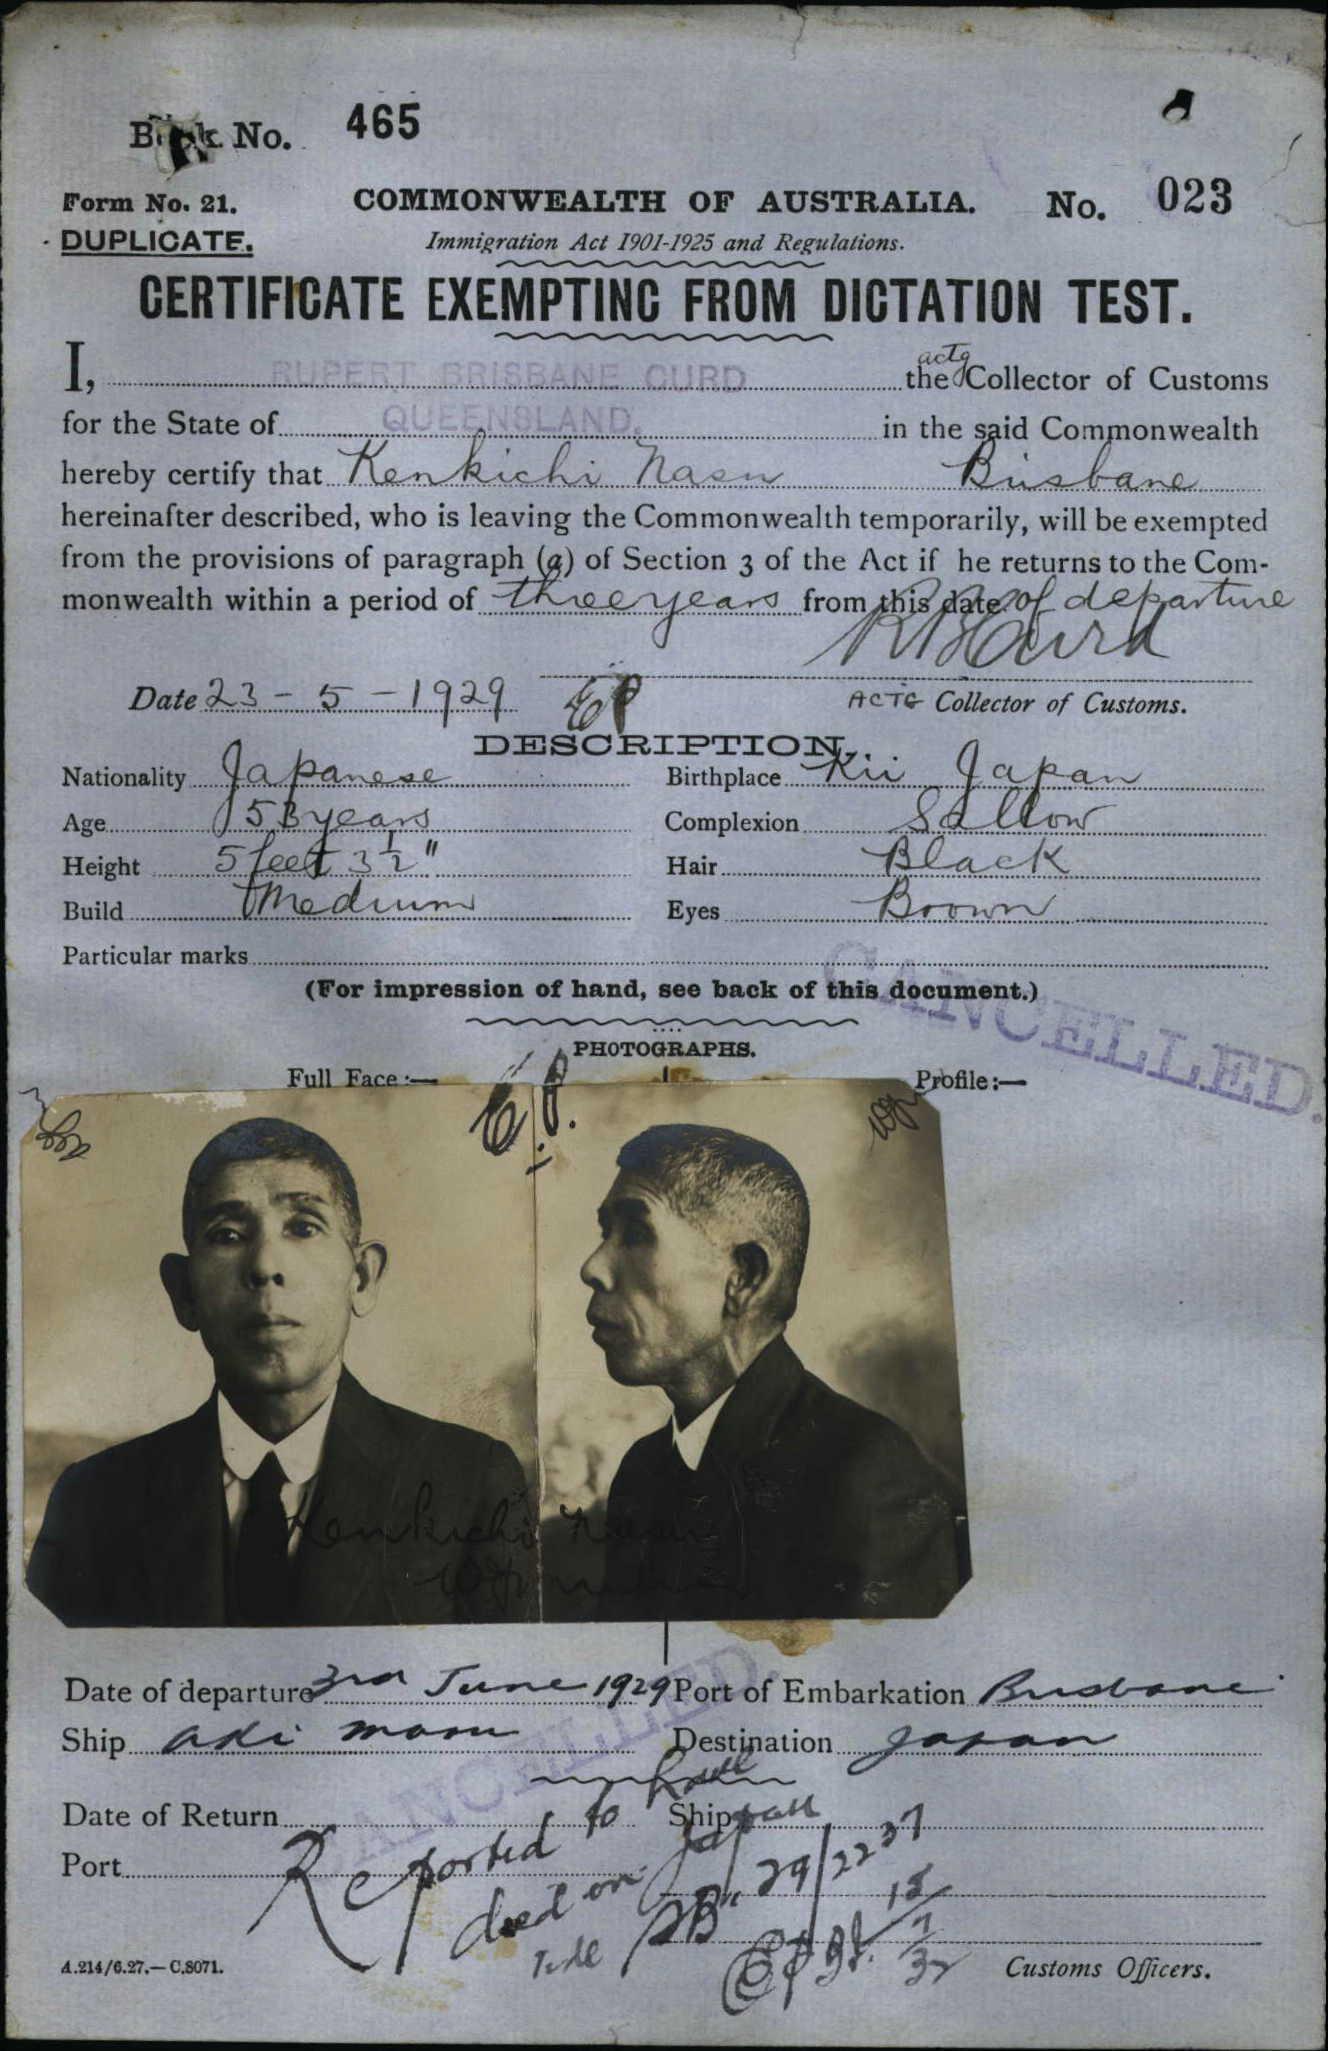 Book No. 465
Form No. 21. COMMONWEALTH OF AUSTRALIA. No. 023
DUPLICATE. Immigration Act 1901-1925 and Regulations.
CERTIFICATE EXEMPTING FROM DICTATION TEST.
I, RUPERT BRISBANE CURD the actg Collector of Customs
for the State of QUEENSLAND. in the said Commonwealth
hereby certify that Kenkichi Nasu Brisbane
hereinafter described, who is leaving the Commonwealth temporarily, will be exempted
from the provisions of paragraph (a) of Section 3 of the Act if he returns to the Com-
monwealth within a period of three years from this date of departure
RBCurd
Date 23-5-1929 EP ACTG Collector of Customs.
DESCRIPTION.
Nationality Japanese Birthplace Kii Japan
Age 53 years Complexion Sallow
Height 5 feet 3 1/2" Hair Black
Build Medium Eyes Brown
Particular marks
(For impression of hand, see back of this document.)
CANCELLED.
PHOTOGRAPHS.
Full Face:— Profile:—
E.P.
Kenkichi Nasu
Date of departure 3rd June 1929 Port of Embarkation Brisbane
Ship Aki Maru Destination Japan
CANCELLED.
Date of Return Ship
Port
Reported to have
died on Japan
Tide "B" 29/2237
15/7/32
A.214/6.27.—C.8071. Customs Officers.